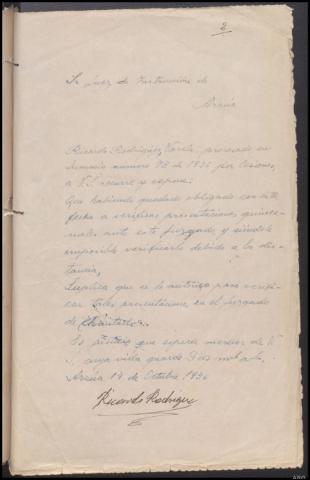 2
Sr Juez de Instrucción de
Arzúa
Ricardo Rodríguez Varela, procesado en
sumario número 78 de 1936 por lesiones,
a V.S. recurre y expone:
Que habiendo quedado obligado con esta
fecha a verificar presentaciones quince-
nales ante este Juzgado, y siéndole
imposible verificarlo debido a la dis-
tancia,
Suplica que se le autorice para verifi-
car tales presentaciones en el Juzgado
de
Es justicia que espera merecer de V.
S. cuya vida guarde Dios m. a.
Arzúa 19 de Octubre 1936
Ricardo Rodriguez